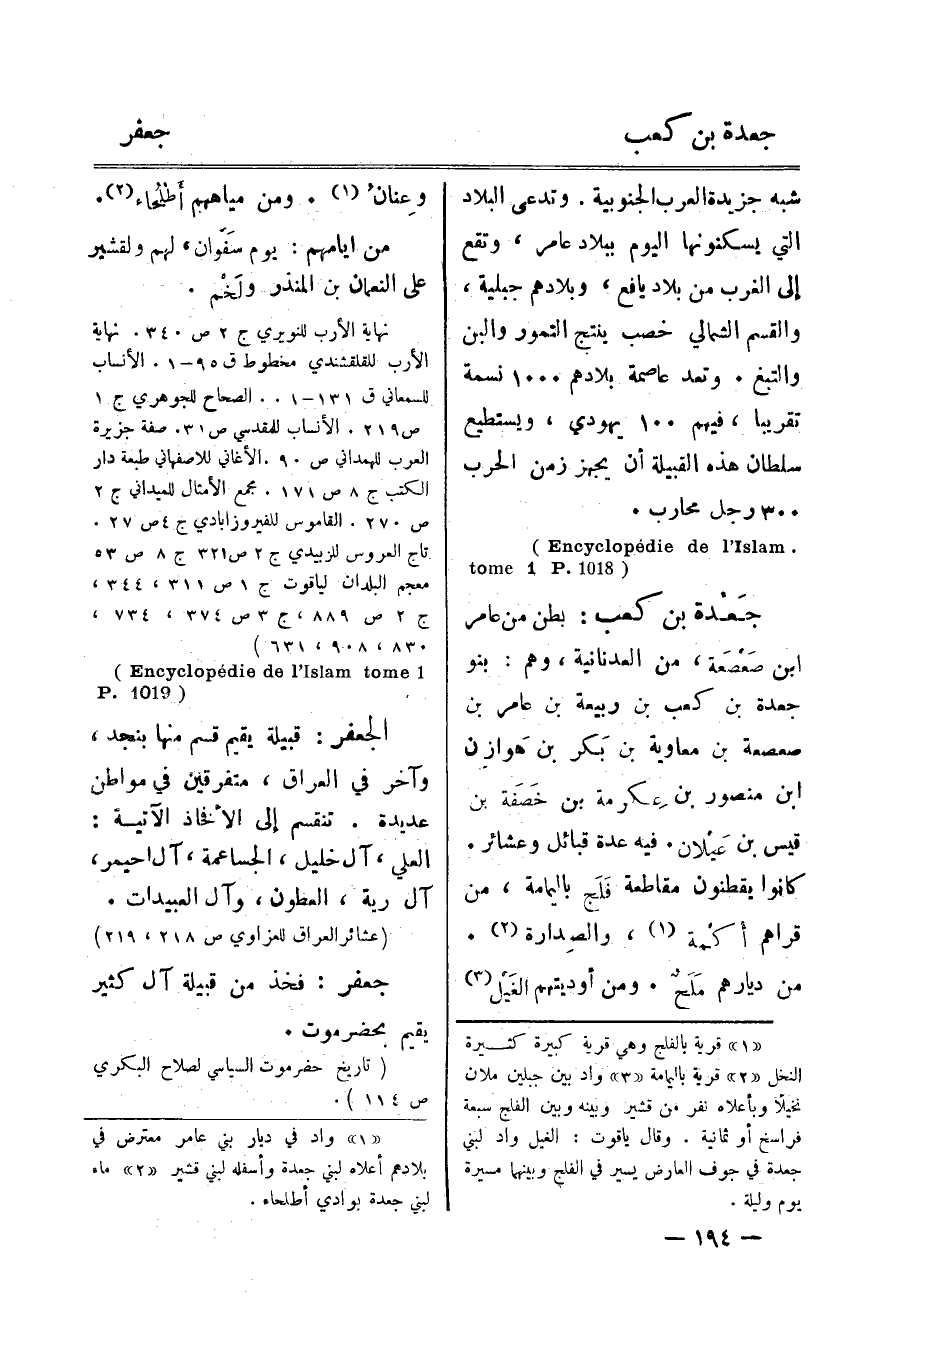 جعدة بن كعب
جعفر
شبه جزيدة العرب الجنوبية . وتدعى البلاد
التي يسكنونها اليوم ببلاد عامر ، وتقع
إلى الغرب من بلاد يافع ، وبلادهم جبلية ،
والقسم الشمالي خصب ينتج التمور والبن
والتبغ . وتعد عاصمة بلادهم ١٠٠٠ نسمة
تقريبا ، فيهم ١٠٠ يهودي ، ويستطيع
سلطان هذه القبيلة أن يجهز زمن الحرب
٣٠٠ رجل محارب .
( Encyclopédie de l'Islam .
tome 1 P. 1018 )
جَعْدة بن كعب : بطن من عامر
ابن صَعْصَعة ، من العدنانية ، وهم : بنو
جعدة بن كعب بن ربيعة بن عامر بن
صعصعة بن معاوية بن بَكر بن هَوازِن
ابن منصور بن عِكرمة بن خَصَفَة بن
قيس بن عَيْلان . فيه عدة قبائل وعشائر .
كانوا يقطنون مقاطعة فَلَج باليمامة ، من
قراهم أُكْمة (١) ، والصدارة (٢) .
من ديارهم مَلَحٌ . ومن أوديتهم الغَيْل (٣)
«١» قرية بالفلج وهي قرية كبيرة كثيرة
النخل «٢» قرية باليمامة «٣» واد بين جبلين ملان
نخيلًا وبأعلاه نفر من قشير وبينه وبين الفلج سبعة
فراسخ أو ثمانية . وقال ياقوت : الغيل واد لبني
جعدة في جوف العارض يسير في الفلج وبينها مسيرة
يوم وليلة .
وعِنان (١) . ومن مياههم أَطْلُحاء (٢) .
من ايامهم : يوم سَفَوان ، لهم ولقشير
على النعمان بن المنذر ولَخْم .
نهاية الأرب للنويري ج ٢ ص ٣٤٠ . نهاية
الأرب للقلقشندي مخطوط ق ٩٥-١ . الأنساب
للسمعاني ق ١٣١-١ . . الصحاح للجوهري ج ١
ص ٢١٩ . الأنساب للمقدسي ص ٣١ . صفة جزيرة
العرب للهمداني ص ٩٠ . الأغاني للاصفهاني طبعة دار
الكتب ج ٨ ص ١٧١ . مجمع الأمثال للميداني ج ٢
ص ٢٧٠ . القاموس للفيروزابادي ج ٤ ص ٢٧ .
تاج العروس للزبيدي ج ٢ ص ٣٢١ ج ٨ ص ٥٣
معجم البلدان لياقوت ج ١ ص ٣١١ ، ٣٤٤ ،
ج ٢ ص ٨٨٩ ، ج ٣ ص ٣٧٤ ، ٧٣٤ ،
٨٣٠ ، ٩٠٨ ، ٦٣١ )
( Encyclopédie de l'Islam tome 1
P. 1019 )
الجعفر : قبيلة يقيم قسم منها بنجد ،
وآخر في العراق ، متفرقين في مواطن
عديدة . تنقسم إلى الأفخاذ الآتية :
العلي ، آل خليل ، الجساعمة ، آل احيمر ،
آل رية ، العطون ، وآل العبيدات .
( عشائر العراق للعزاوي ص ٢١٨ ، ٢١٩ )
جعفر : فخذ من قبيلة آل كثير
يقيم بحضرموت .
( تاريخ حضرموت السياسي لصلاح البكري
ص ١١٤ ) .
«١» واد في ديار بني عامر معترض في
بلادهم أعلاه لبني جعدة وأسفله لبني قشير «٢» ماء
لبني جعدة بوادي أطلحاء .
— ١٩٤ —